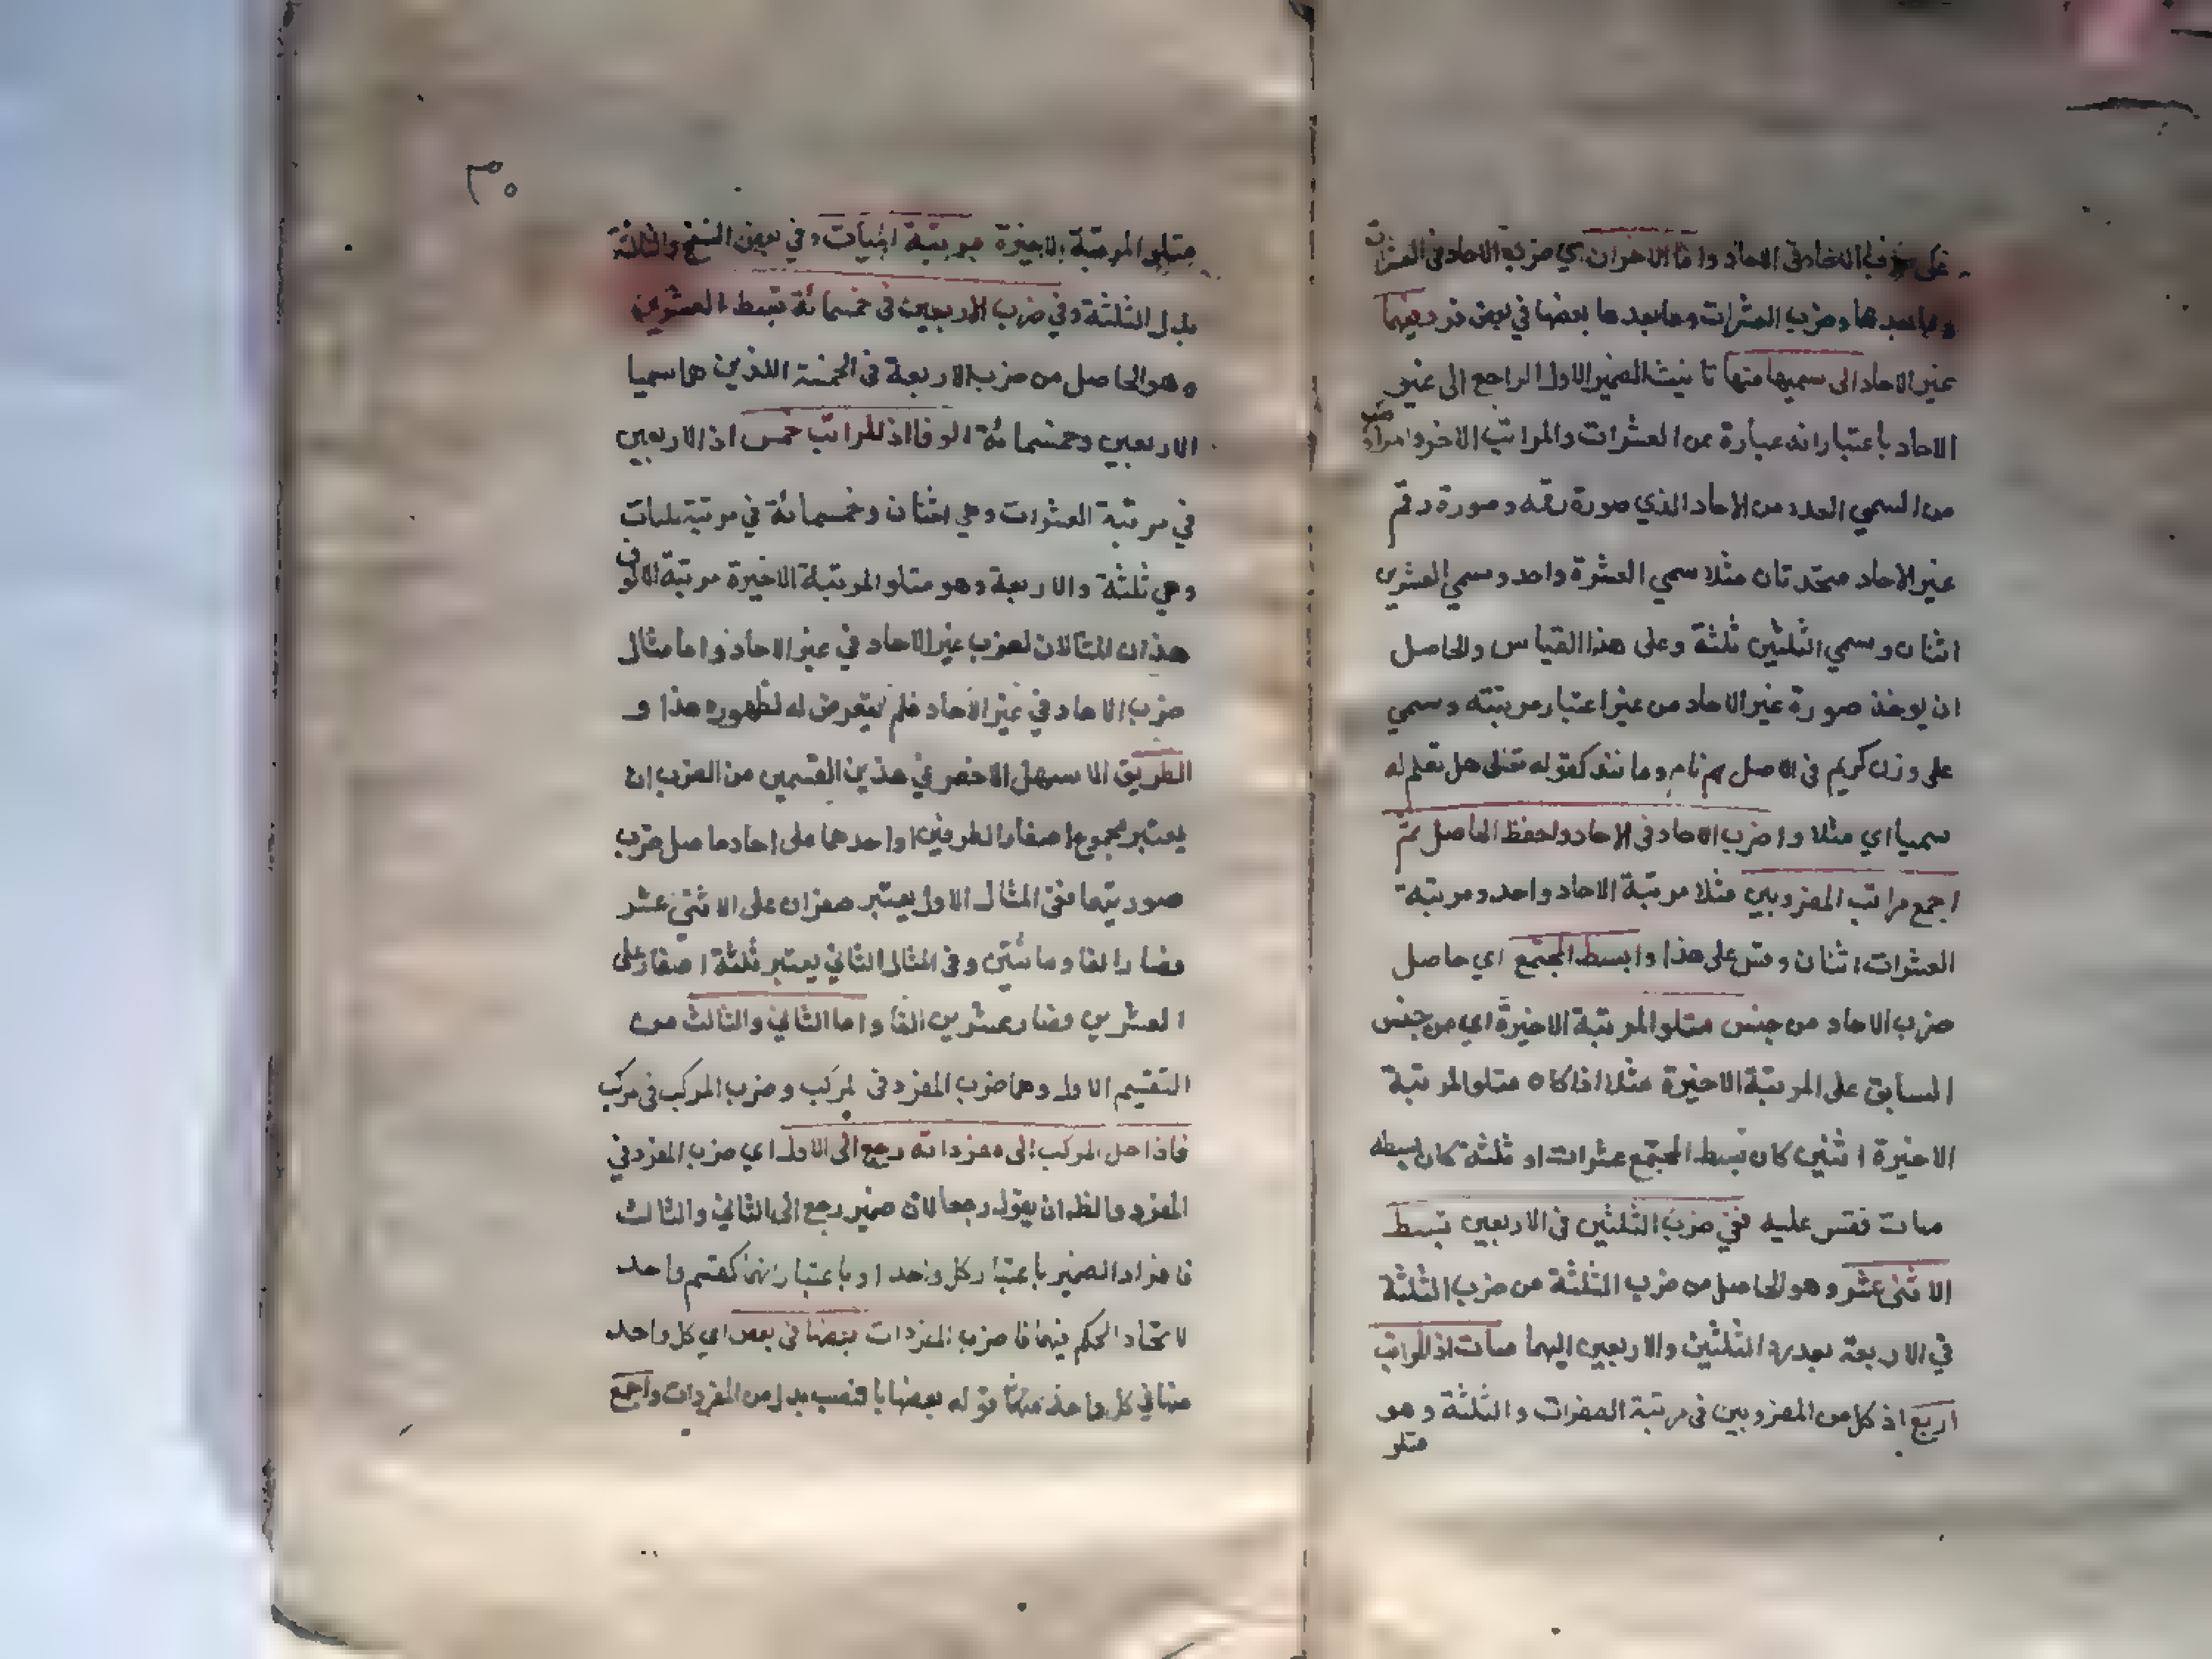 على ضرب الاحاد فى الاحاد واما الاخران اي ضرب الاحاد فى العشرات
وما بعدها وضرب العشرات وما بعدها بعضها في بعض فرد فيهما
غير الاحاد الى سميها منها تانيث الضمير الاول الراجع الى غير
الاحاد باعتبار انه عبارة عن العشرات والمراتب الاخر وامراد
من السمي العدد من الاحاد الذي صورة رقمه وصورة رقم
غير الاحاد متحدتان مثلا سمي العشرة واحد وسمي العشرين
اثنان وسمي الثلثين ثلثة وعلى هذا القياس والحاصل
ان يوخذ صورة غير الاحاد من غير اعتبار مرتبته وسمي
على وزن كريم فى الاصل هم نام وما نند كقوله تعالى هل تعلم له
سميا اي مثلا واضرب الاحاد فى الاحاد واحفظ الحاصل ثم
اجمع مراتب المضروبين مثلا مرتبة الاحاد واحد ومرتبة
العشرات اثنان وقس على هذا وابسط المجتمع اي حاصل
ضرب الاحاد من جنس متلو المرتبة الاخيرة اي من جنس
السابق على المرتبة الاخيرة مثلا اذا كان متلو المرتبة
الاخيرة اثنين كان بسط المجتمع عشرات او ثلثة كان بسطه
مات فقس عليه ففي ضرب الثلثين فى الاربعين تبسط
الاثنى عشر وهو الحاصل من ضرب الثلثة من ضرب الثلثة
في الاربعة بعد رد الثلثين والاربعين اليهما مات اذ المراتب
اربع اذ كل من المضروبين فى مرتبة العشرات والثلثة وهو
متلو
٣٠
متلو المرتبة الاخيرة مرتبة الميآت وفي بعض النسخ والثلثة
بدل الثلثة وفي ضرب الاربعين فى خمسمائة تبسط العشرين
وهو الحاصل من ضرب الاربعة فى الخمسة اللذين هما سميا
الاربعين وخمسمائة الوفا اذ المراتب خمس اذ الاربعين
في مرتبة العشرات وهي اثنان وخمسمائة في مرتبة المات
وهي ثلثة والاربعة وهو متلو المرتبة الاخيرة مرتبة الالوف
هذان المثالان لضرب غير الاحاد في غير الاحاد واما مثال
ضرب الاحاد في غير الاحاد فلم يتعرض له لظهوره هذا و
الطريق الاسهل الاخصر في هذين القسمين من الضرب ان
يعتبر مجموع اصفار الطرفين او احدهما على احاد حاصل ضرب
صورتيهما ففى المثال الاول يعتبر صفران على الاثنى عشر
فصار الفا ومائتين وفى المثال الثاني يعتبر ثلثة اصفار على
العشرين فصار عشرين الفا واما الثاني والثالث من
التقسيم الاول وهما ضرب المفرد فى المركب وضرب المركب فى مركب
فاذا حل المركب الى مفرداته رجع الى الاول اي ضرب المفرد في
المفرد والظ ان يقول رجعا لان ضمير رجع الى الثاني والثالث
فافراد الضمير باعتبار كل واحد او باعتبار انهما كقسم واحد
لاتحاد الحكم فيهما فاضرب المفردات بعضها فى بعض اي كل واحد
منها في كل واحد منها قوله بعضها بالنصب بدل من المفردات واجمع